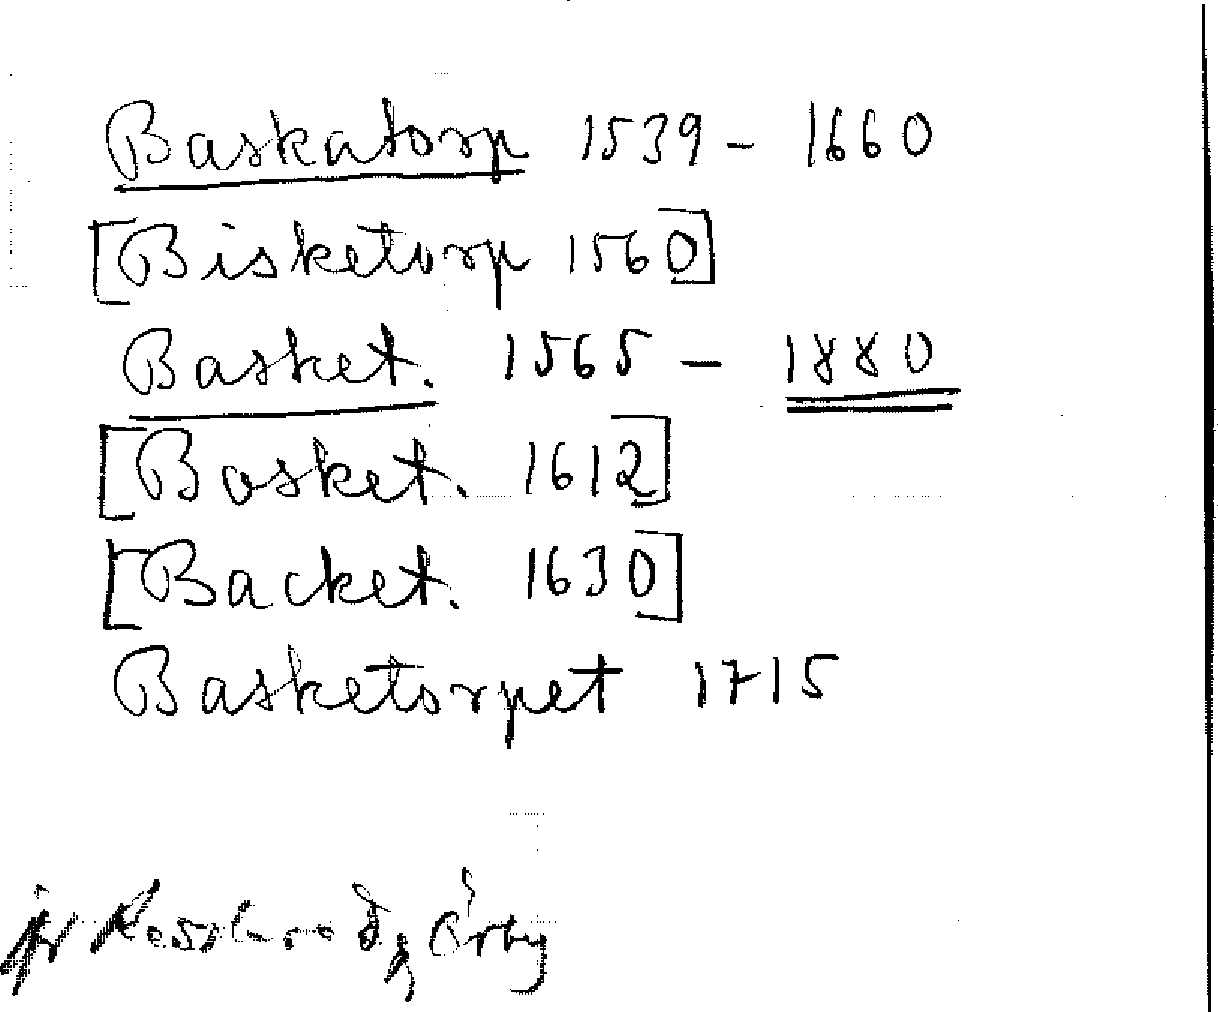 Baskatorp 1539 - 1660
[Bisketorp 1560]
Basket. 1565 - 1880
[Bosket. 1612]
[Backet. 1630]
Basketorpet 1715
jfr Örby